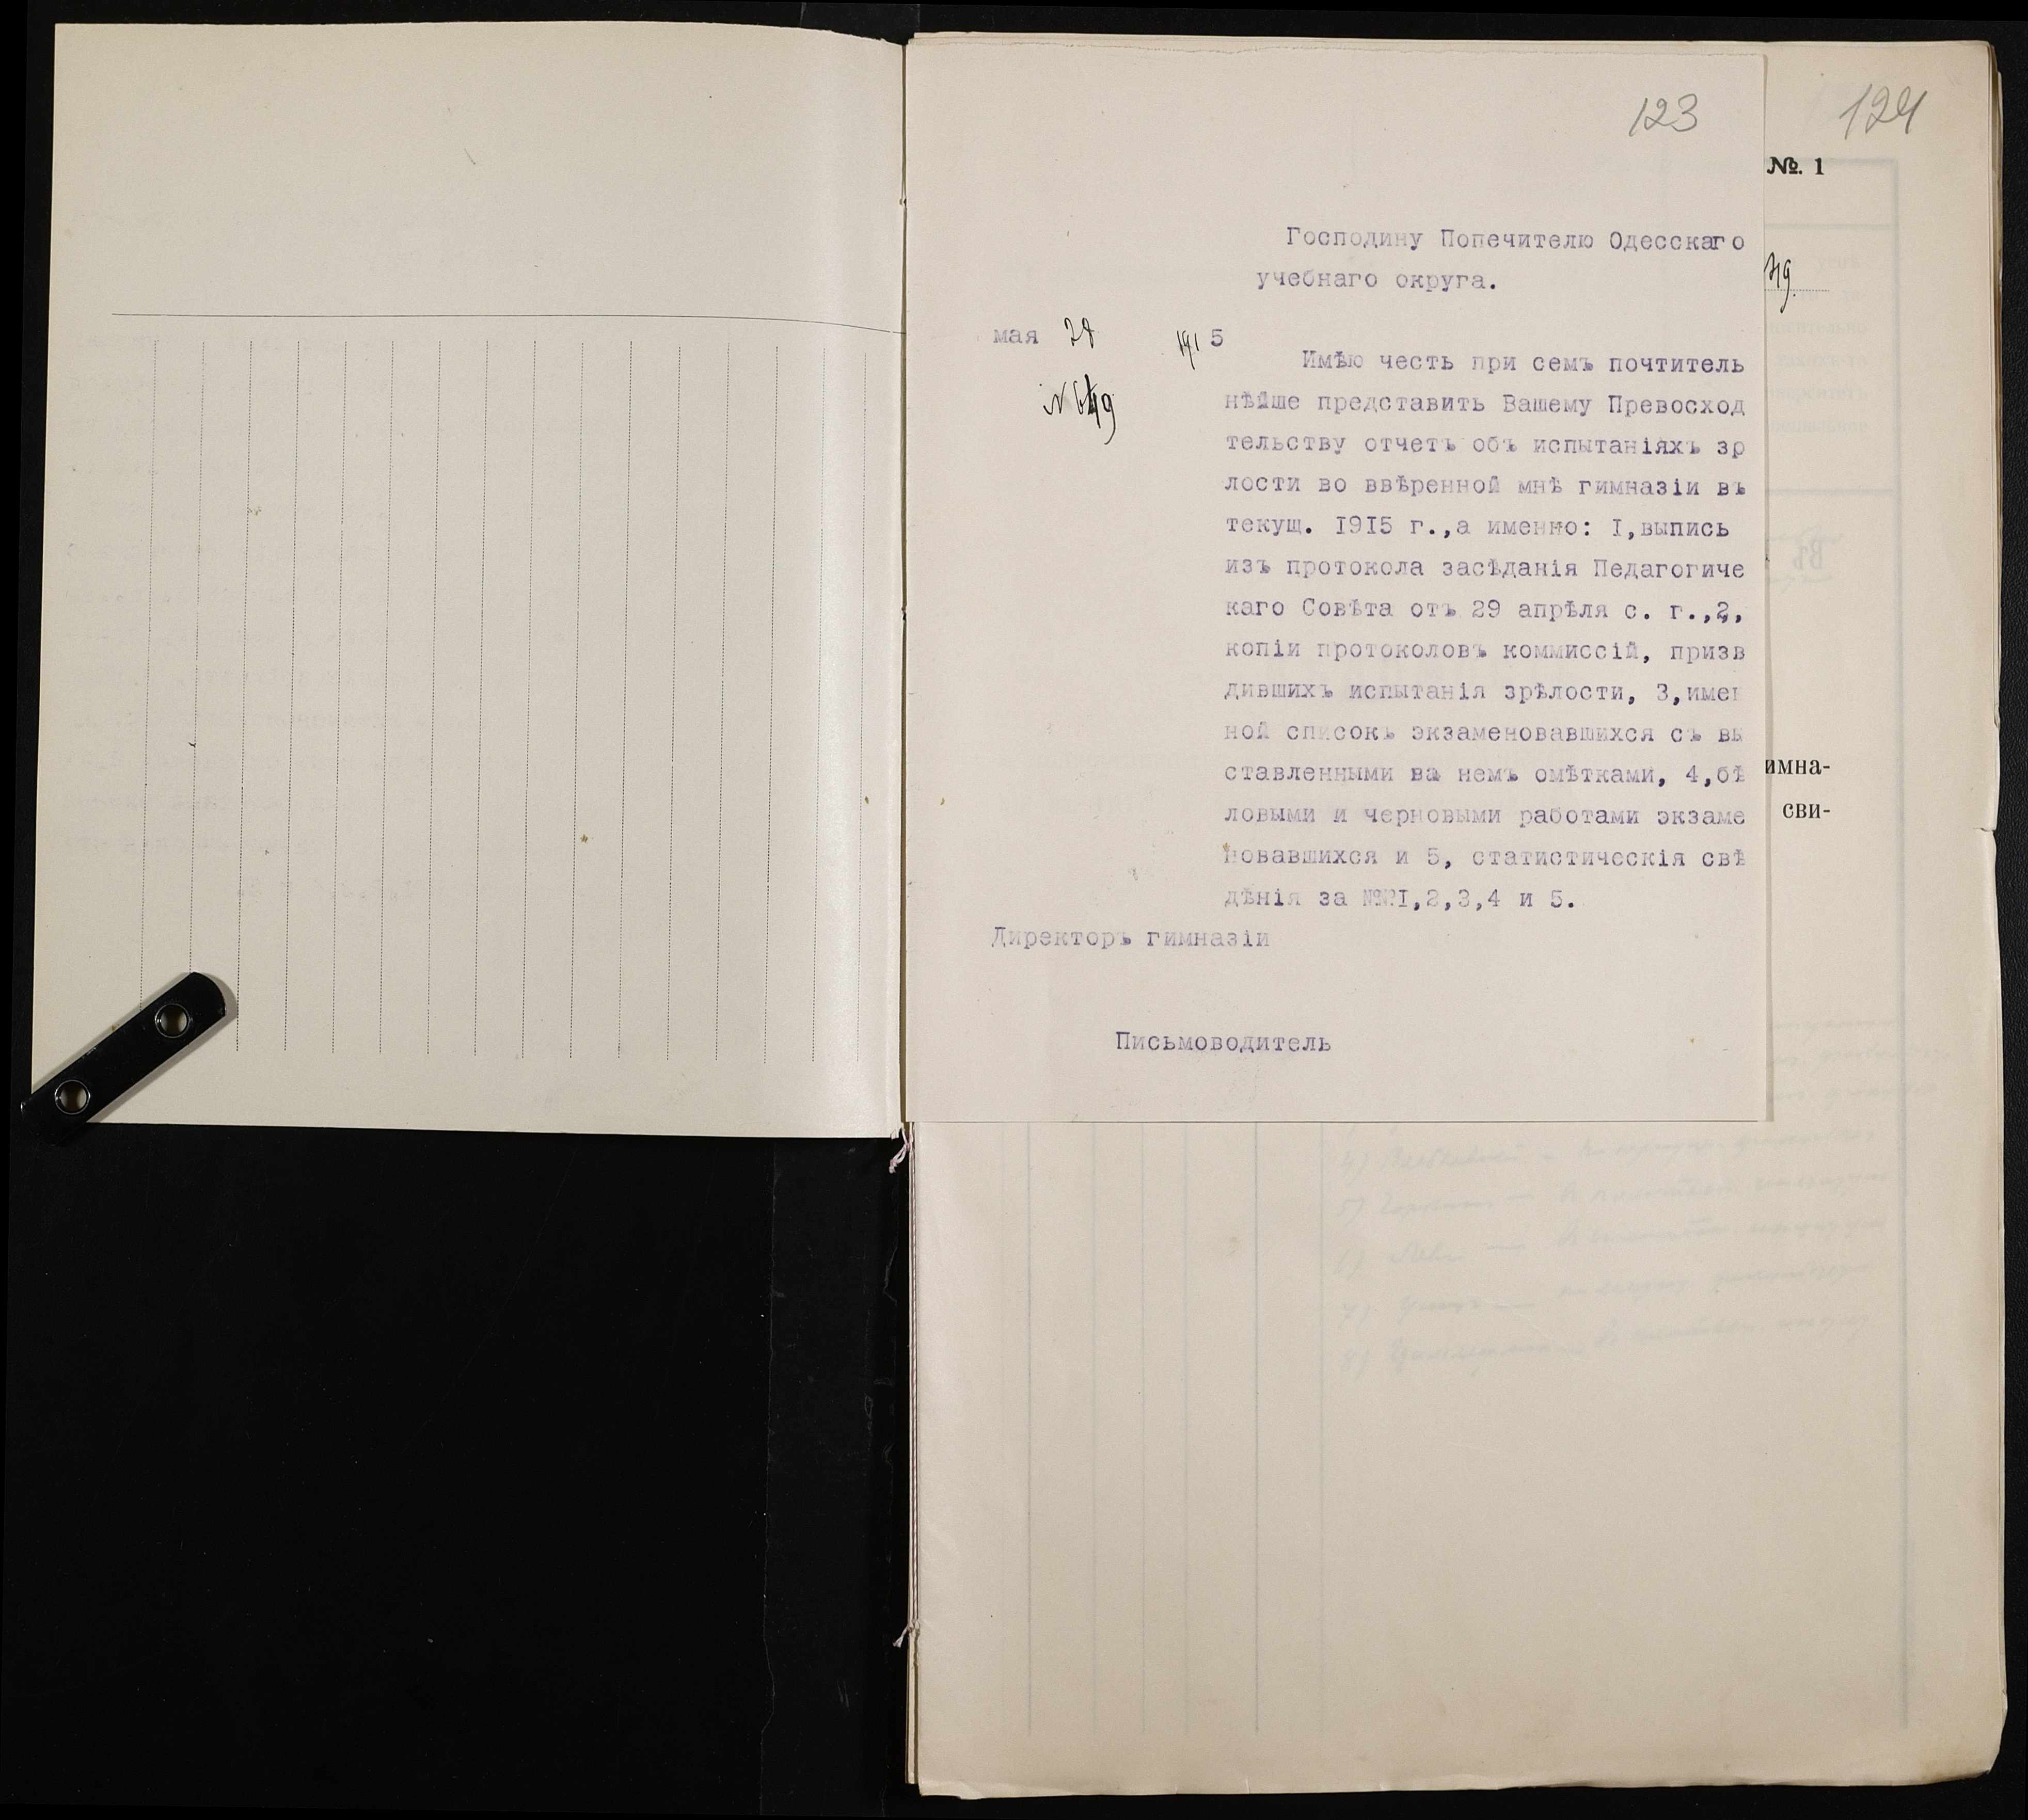 123
124
№. 1
Господину Попечителю Одесскаго
учебнаго округа.
мая 28 1915
N 649
Имѣю честь при семъ почтитель
нѣйше представить Вашему Превосход
тельству отчетъ объ испытаніяхъ зр
лости во ввѣренной мнѣ гимназіи въ
текущ. 1915 г.,а именно: I,выпись
изъ протокола засѣданія Педагогиче
каго Совѣта отъ 29 апрѣля с. г.,2,
копіи протоколовъ коммиссій, призв
дившихъ испытанія зрѣлости, 3,имен
ной списокъ экзаменовавшихся съ вы
ставленными въ немъ омѣтками, 4,бѣ
ловыми и черновыми работами экзаме
новавшихся и 5, статистическія свѣ
дѣнія за №№I,2,3,4 и 5.
Директоръ гимназіи
Письмоводитель
имна-
сви-